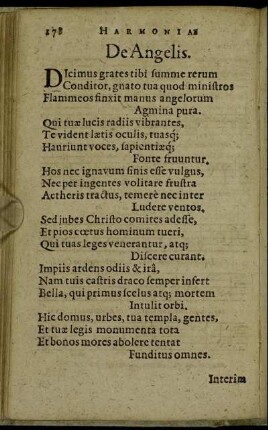 278 HARMONIAE
De Angelis.
DIcimus grates tibi summe rerum
Conditor, gnato tua quod ministros
Flammeos finxit manus angelorum
Agmina pura.
Qui tuæ lucis radiis vibrantes,
Te vident lætis oculis, tuasq;
Hauriunt voces, sapientiæq;
Fonte fruuntur.
Hos nec ignavum finis esse vulgus,
Nec per ingentes volitare frustra
Aetheris tractus, temerè nec inter
Ludere ventos.
Sed jubes Christo comites adesse,
Et pios cœtus hominum tueri,
Qui tuas leges venerantur, atq;
Discere curant.
Impiis ardens odiis & irâ,
Nam tuis castris draco semper infert
Bella, qui primus scelus atq; mortem
Intulit orbi.
Hic domus, urbes, tua templa, gentes,
Et tuæ legis monumenta tota
Et bonos mores abolere tentat
Funditus omnes.
Interim